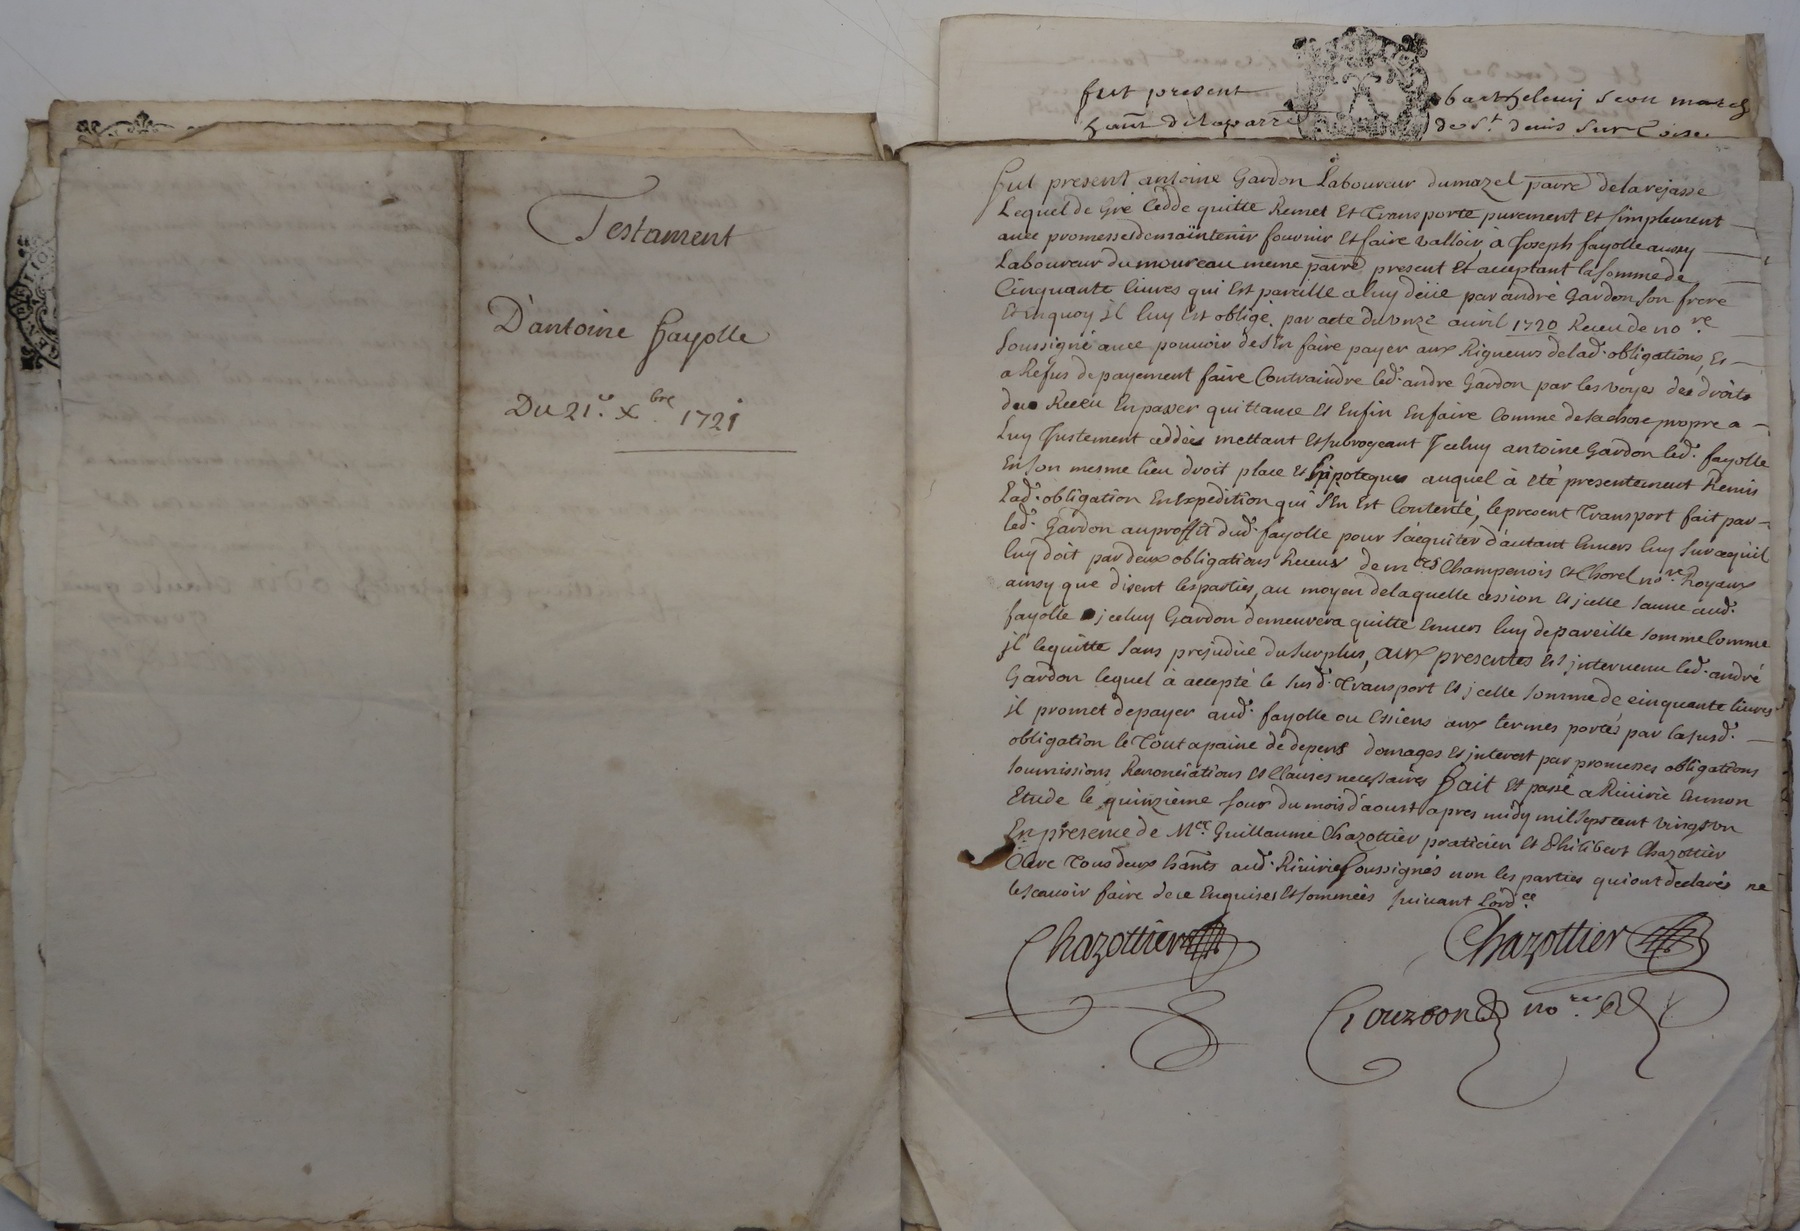 fut present barthelemy seon march
hant delaparre de St denis sur Coise
Testament
D'antoine fayolle
Du 21e Xbre 1721
fut present antoine Gardon Laboureur dumazel parre delarejasse
Lequel de Gré Cedde quitte Remet Et Transporte purement Et simplement
avec promesses demaintenir fournir Et faire valloir à Joseph fayolle aussy
Laboureur dumoureau meme parre present Et aceptant lasomme de
Cinquante livres qui Est pareille aluy deüe par andré Gardon son frere
Et en quoy jl luy Est obligé par acte du onze avril 1720 Receu de nore
soussigné avec pouvoir de s'en faire payer aux Rigueurs delad. obligations, Et
a Refus depayement faire Contraindre led. andre Gardon par les voyes de droits
du Receu En passer quittance Et Enfin En faire Comme delachose propre a
Luy Justement ceddées mettant Et subrogeant Jceluy antoine Gardon led. fayolle
En son mesme lieu droit place Et hipoteques auquel à été presentement Remis
Lad. obligation En Expedition qui s'En Est Contenté, le present Transport fait par
led. Gardon auproffit dud. fayolle pour s'acquiter d'autant Envers luy sur cequ'il
luy doit par deux obligations Receus de mres Champenois Et Chorel nore Royaux
ainsy que disent lesparties, au moyen delaquelle cession Et jcelle sauve aud.
fayolle jceluy Gardon demeurera quitte Envers luy depareille somme Comme
jl lequitte sans prejudice dusurplus, aux presentes Est jntervenu led. andré
Gardon lequel à accepté le susd. Transport Et jcelle somme de cinquante livres
jl promet depayer aud. fayolle ou Essiens aux termes portés par lasusd.
obligation le Tout apaine de depens domages Et jnterest par promesses obligations
soumissions Renonciations Et Clauses necessaires fait Et passé a Riverie En mon
Etude le quinzieme Jour du mois d'aoust apres midy mil sept cent vingt un
En presence de Mre Guillaume Chazottier praticien Et Philibert Chazottier
Clerc Tous deux hants aud. Riverie soussignés non les parties qui ont declarés ne
le scavoir faire de ce Enquises Et sommées suivant Lordce
Chazottier Chazottier
Gouzoon nore